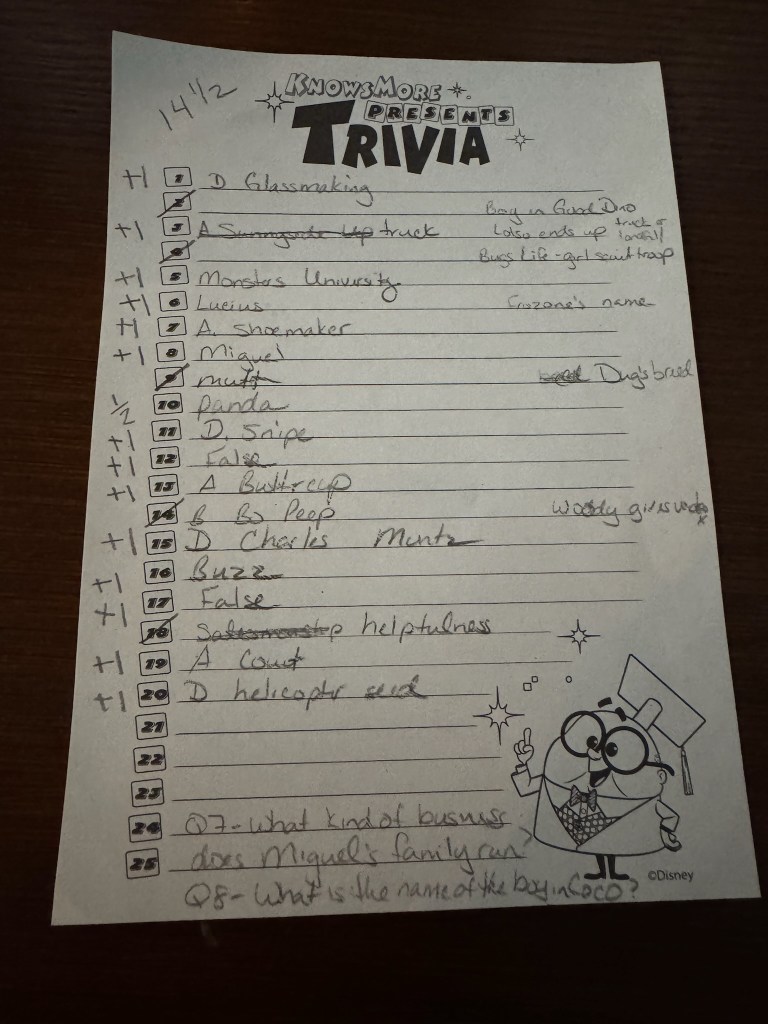 14 1/2
KNOWSMORE
PRESENTS
TRIVIA
+1 1 D Glassmaking
2 Boy in Good Dino
+1 3 A Sunnyside Up truck Lotso ends up truck or landfill
4 Bugs Life - girl scout troop
+1 5 Monsters University
+1 6 Lucius Frozone's name
+1 7 A. Shoemaker
+1 8 Miguel
9 mutt Dug's breed
1/2 10 panda
+1 11 D. Snipe
+1 12 False
+1 13 A Buttercup
14 B Bo Peep Woody gives
+1 15 D Charles Muntz
+1 16 Buzz
+1 17 False
18 helpfulness
+1 19 A Court
+1 20 D helicoptr seed
21
22
23
24 Q7- what kind of business
25 does Miguel's family run?
Q8- What is the name of the boy in Coco?
©Disney